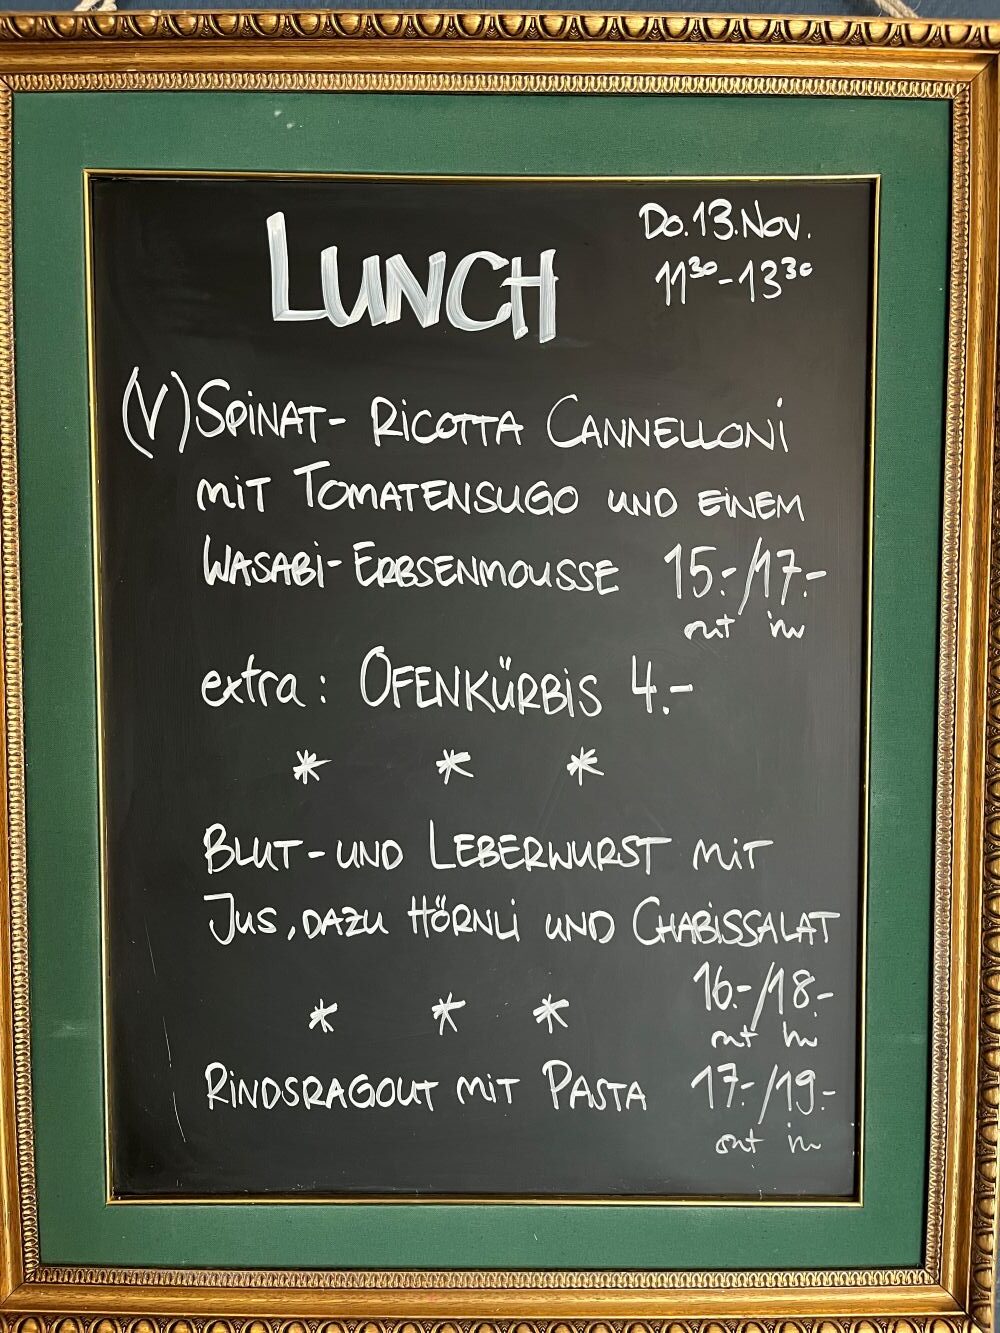 LUNCH
Do. 13. Nov.
11³⁰-13³⁰
(V) SPINAT- RICOTTA CANNELLONI
MIT TOMATENSUGO UND EINEM
WASABI- ERBSENMOUSSE 15.-/17.-
out in
extra: OFENKÜRBIS 4.-
* * *
BLUT- UND LEBERWURST MIT
JUS, DAZU HÖRNLI UND CHABISSALAT
16.-/18.-
out in
* * *
RINDSRAGOUT MIT PASTA 17.-/19.-
out in